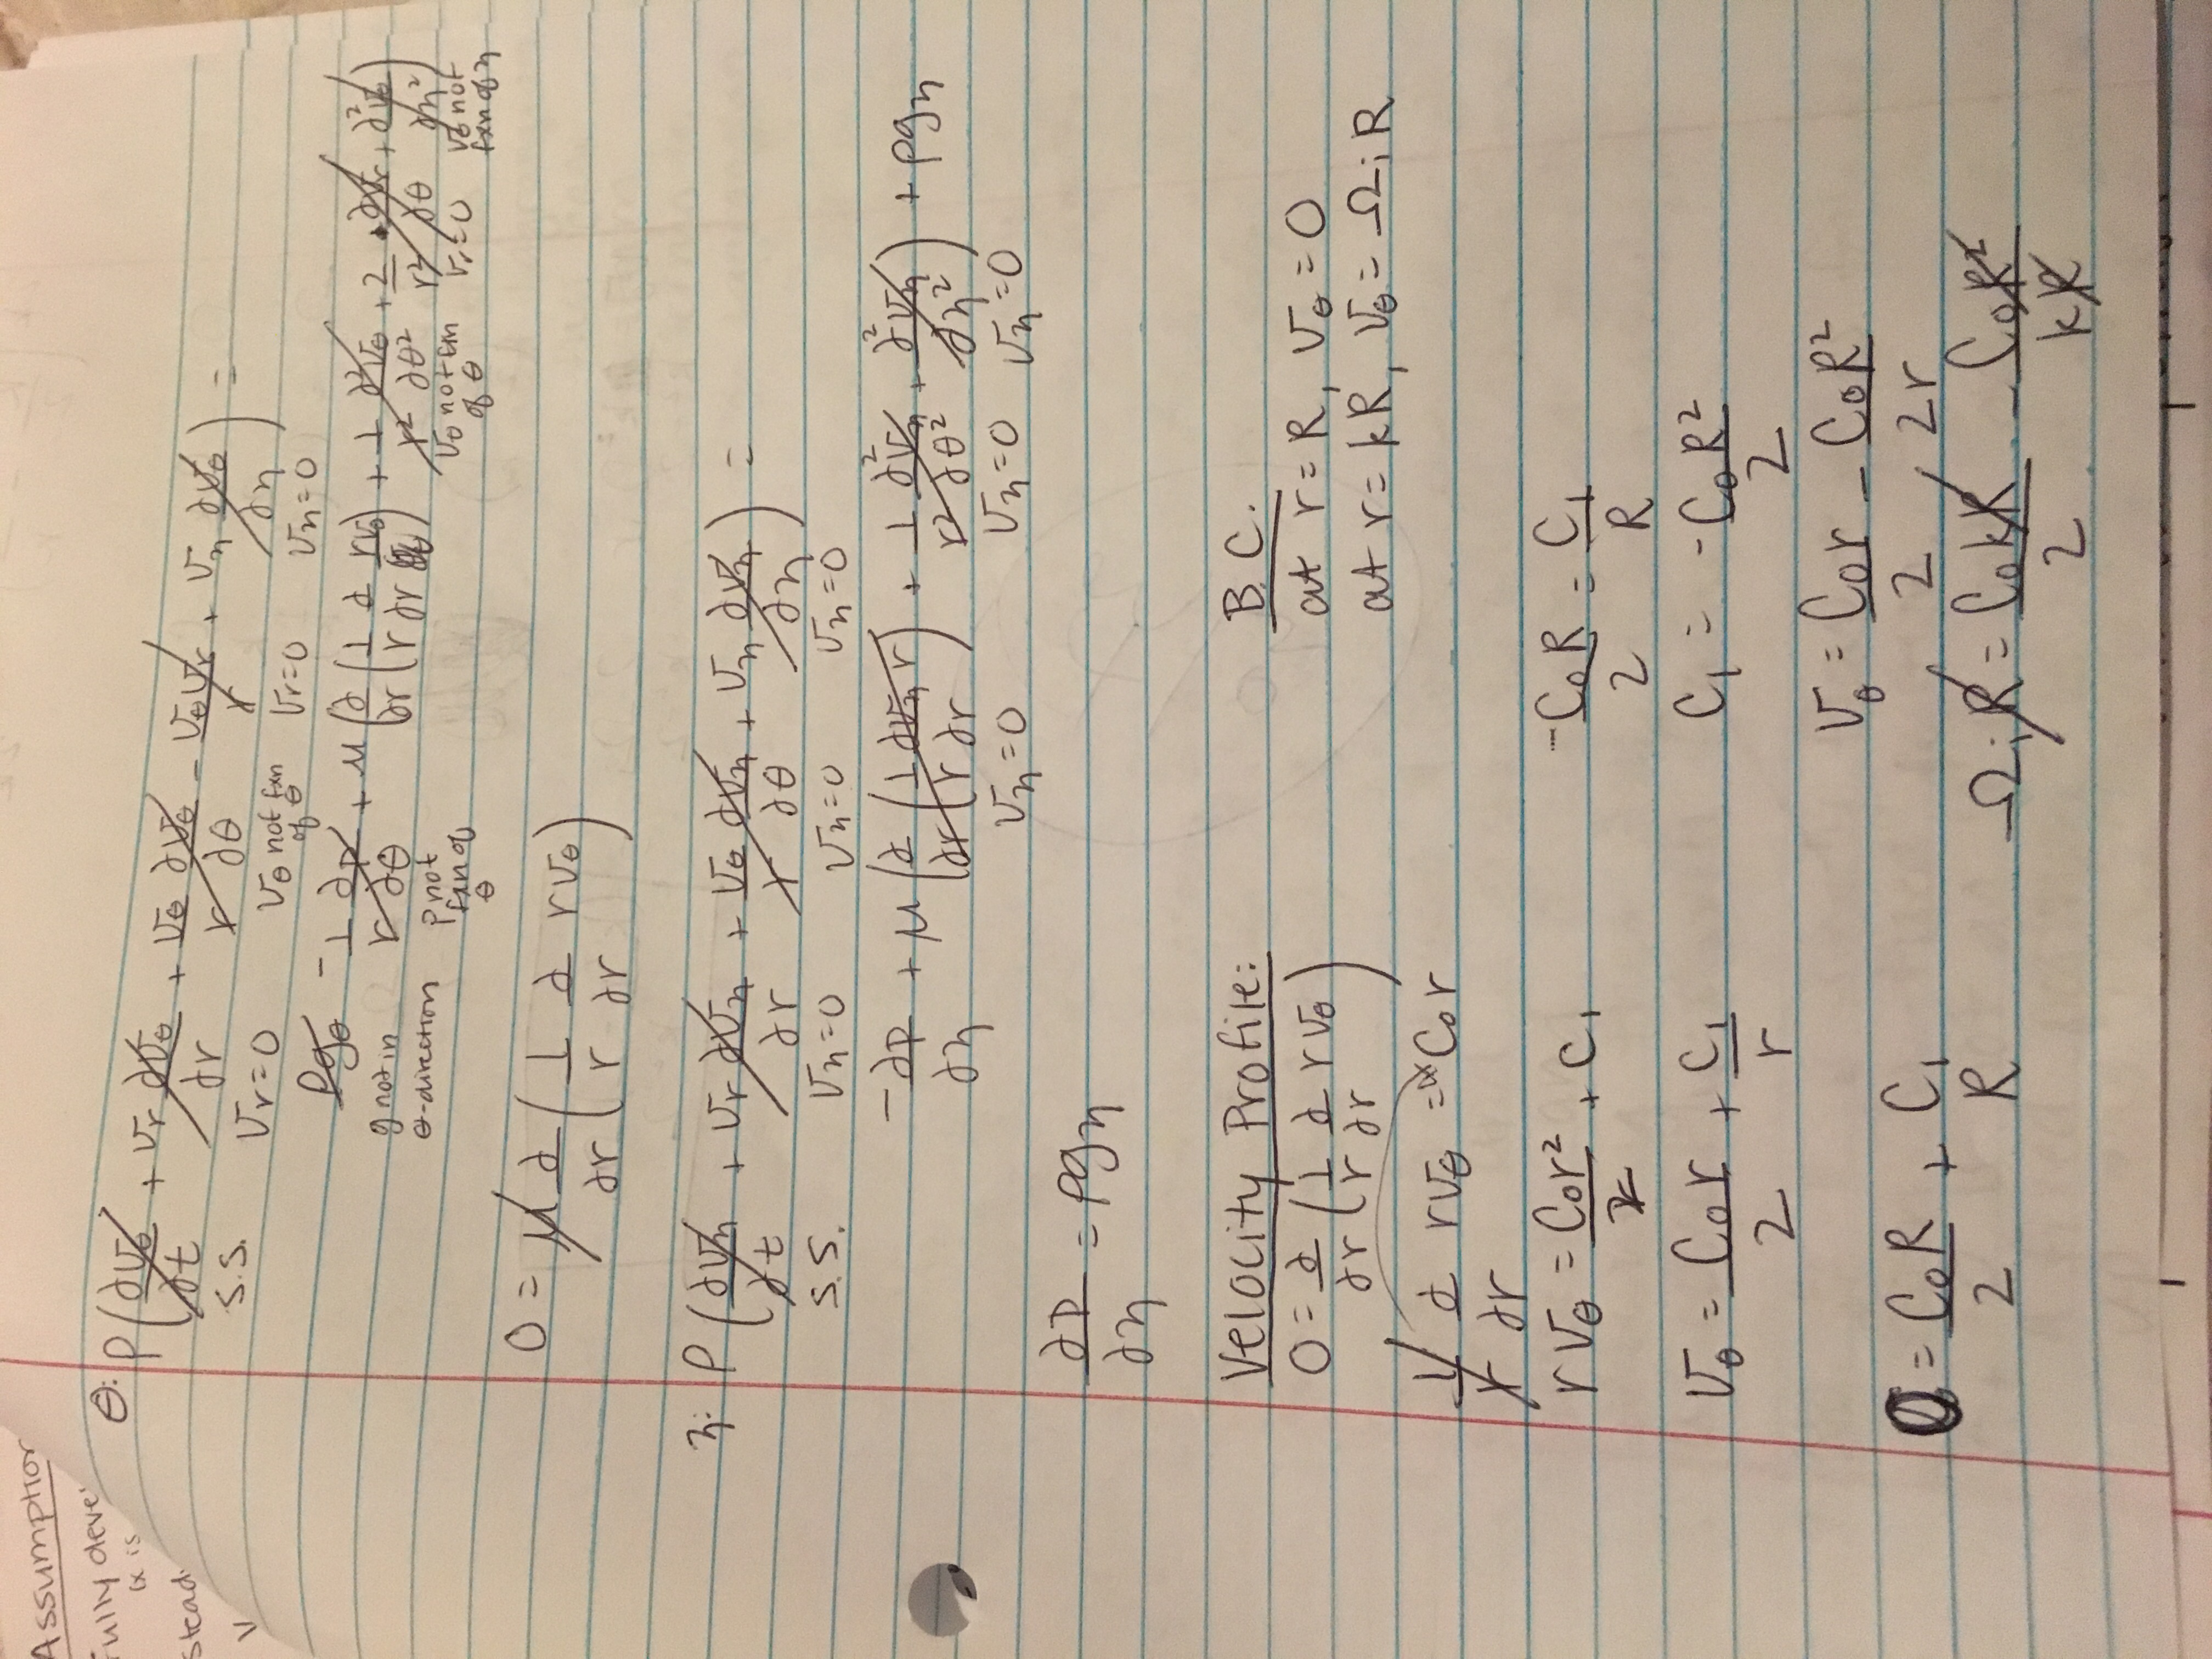 Assumption
Fully deve
(x is
Stead
V
θ: ρ(∂vθ/∂t + vr ∂vθ/∂r + vθ/r ∂vθ/∂θ - vθvr/r + vz ∂vθ/∂z) =
S.S. vr=0 vθ not fxn of θ vr=0 vz=0
ρgθ - 1/r ∂p/∂θ + μ(∂/∂r(1/r ∂/∂r rvθ) + 1/r² ∂²vθ/∂θ² + 2/r² ∂vr/∂θ + ∂²vθ/∂z²)
g not in θ-direction p not fxn of θ vθ not fxn of θ vr=0 vθ not fxn of z
0 = μ ∂/∂r (1/r ∂/∂r rvθ)
z: ρ(∂vz/∂t + vr ∂vz/∂r + vθ/r ∂vz/∂θ + vz ∂vz/∂z) =
S.S. vz=0 vz=0 vz=0
-∂p/∂z + μ(∂/∂r(1/r ∂vz/∂r r) + 1/r² ∂²vz/∂θ² + ∂²vz/∂z²) + ρgz
vz=0 vz=0 vz=0
∂p/∂z = ρgz
Velocity Profile:
0 = ∂/∂r (1/r ∂/∂r rvθ)
1/r ∂/∂r rvθ = C₀r
rvθ = C₀r²/2 + C₁
vθ = C₀r/2 + C₁/r
0 = C₀R/2 + C₁/R
B.C.
at r=R, vθ=0
at r=kR, vθ=ΩiR
-C₀R/2 = C₁/R
C₁ = -C₀R²/2
vθ = C₀r/2 - C₀R²/2r
ΩiR = C₀kR/2 - C₀R²/kR